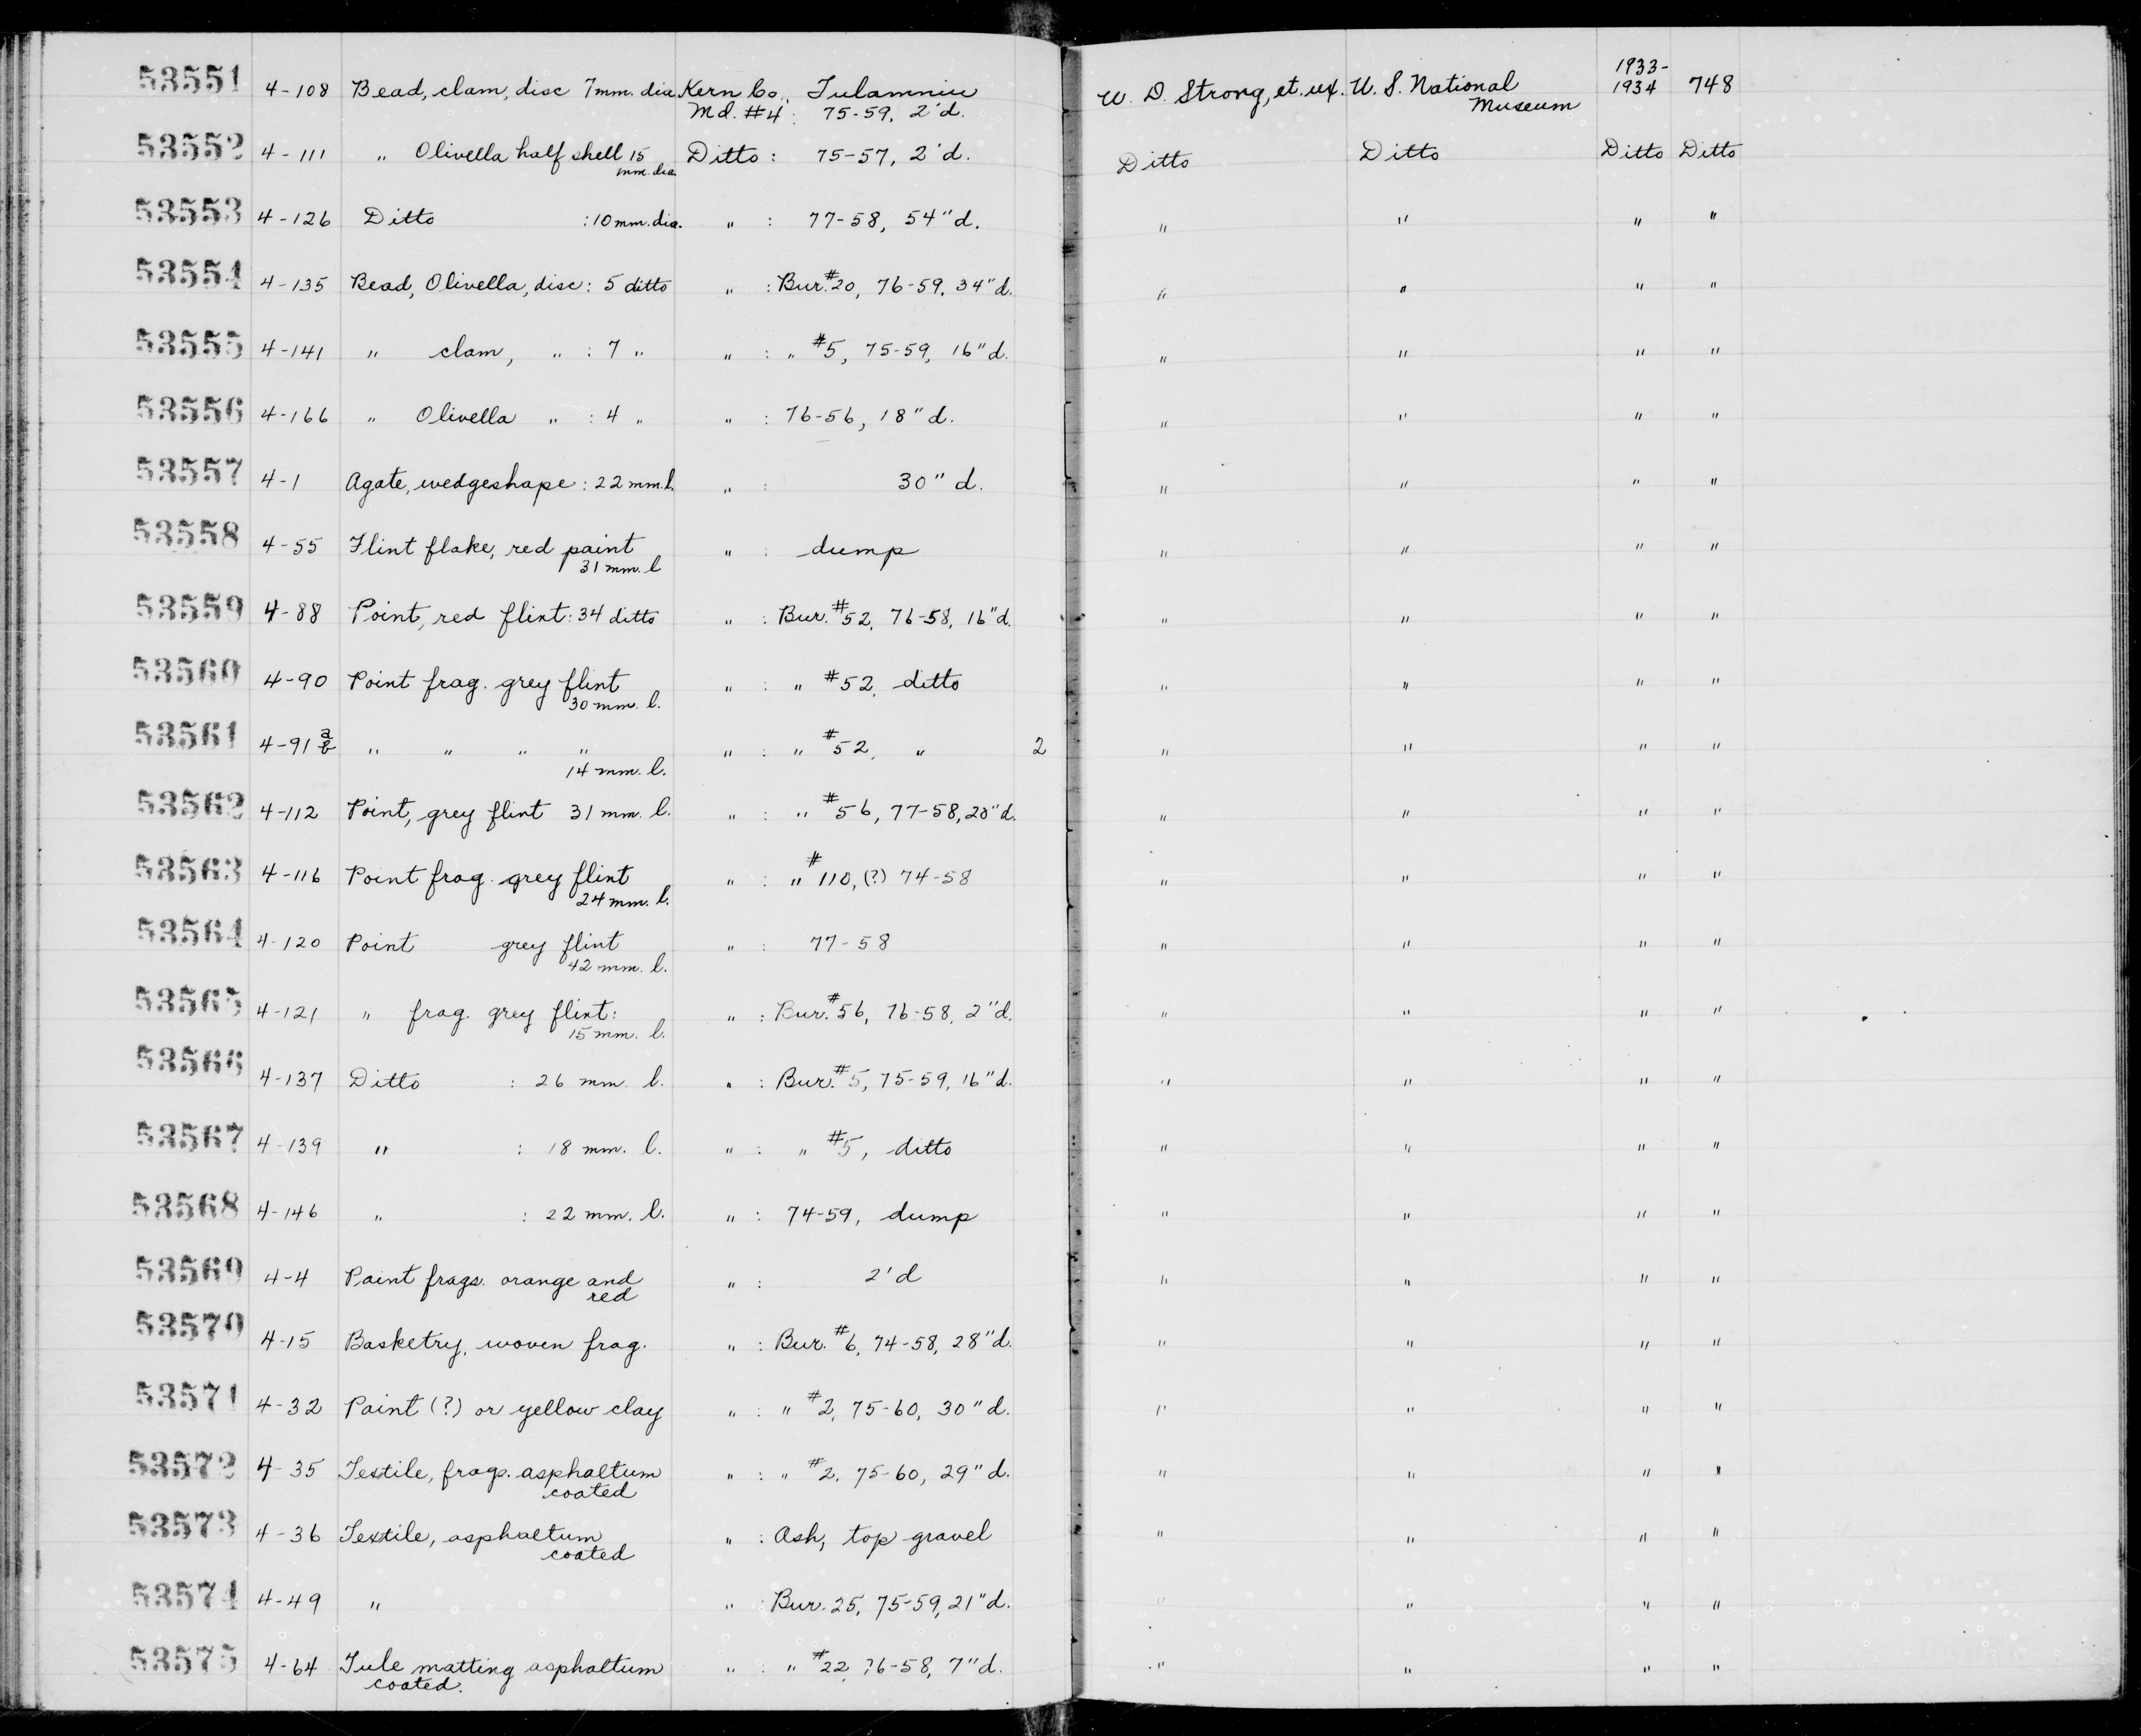 53551 4-108 Bead, clam, disc 7mm. dia Kern Co., Tulamniu W. D. Strong, et. ux. U. S. National 1933-1934 748
Md. #4: 75-59, 2'd. Museum
53552 4-111 " Olivella half shell 15 mm. dia. Ditto: 75-57, 2'd. Ditto Ditto Ditto Ditto
53553 4-126 Ditto :10 mm. dia. " : 77-58, 54"d. " " " "
53554 4-135 Bead, Olivella, disc: 5 ditto " : Bur. #20, 76-59, 34"d. " " " "
53555 4-141 " clam, " : 7 " " : " #5, 75-59, 16"d. " " " "
53556 4-166 " Olivella " : 4 " " : 76-56, 18"d. " " " "
53557 4-1 Agate, wedgeshape: 22 mm. l. " : 30"d. " " " "
53558 4-55 Flint flake, red paint " : dump " " " "
31 mm. l
53559 4-88 Point, red flint: 34 ditto " : Bur. #52, 76-58, 16"d. " " " "
53560 4-90 Point frag. grey flint " : " #52, ditto " " " "
30 mm. l.
53561 4-91 a b " " " " " : " #52, " 2 " " " "
14 mm. l.
53562 4-112 Point, grey flint 31 mm. l. " : " #56, 77-58, 20"d. " " " "
53563 4-116 Point frag. grey flint " : " #110, (?) 74-58 " " " "
24 mm. l.
53564 4-120 Point grey flint " : 77-58 " " " "
42 mm. l.
53565 4-121 " frag. grey flint: " : Bur. #56, 76-58, 2"d. " " " "
15 mm. l.
53566 4-137 Ditto : 26 mm. l. " : Bur. #5, 75-59, 16"d. " " " "
53567 4-139 " : 18 mm. l. " : " #5, ditto " " " "
53568 4-146 " : 22 mm. l. " : 74-59, dump " " " "
53569 4-4 Paint frags. orange and " : 2'd " " " "
red
53570 4-15 Basketry, woven frag. " : Bur. #6, 74-58, 28"d. " " " "
53571 4-32 Paint (?) or yellow clay " : " #2, 75-60, 30"d. " " " "
53572 4-35 Textile, frags. asphaltum " : " #2, 75-60, 29"d. " " " "
coated
53573 4-36 Textile, asphaltum " : Ash, top gravel " " " "
coated
53574 4-49 " " : Bur. 25, 75-59, 21"d. " " " "
53575 4-64 Tule matting asphaltum " : " #22, 76-58, 7"d. " " " "
coated.